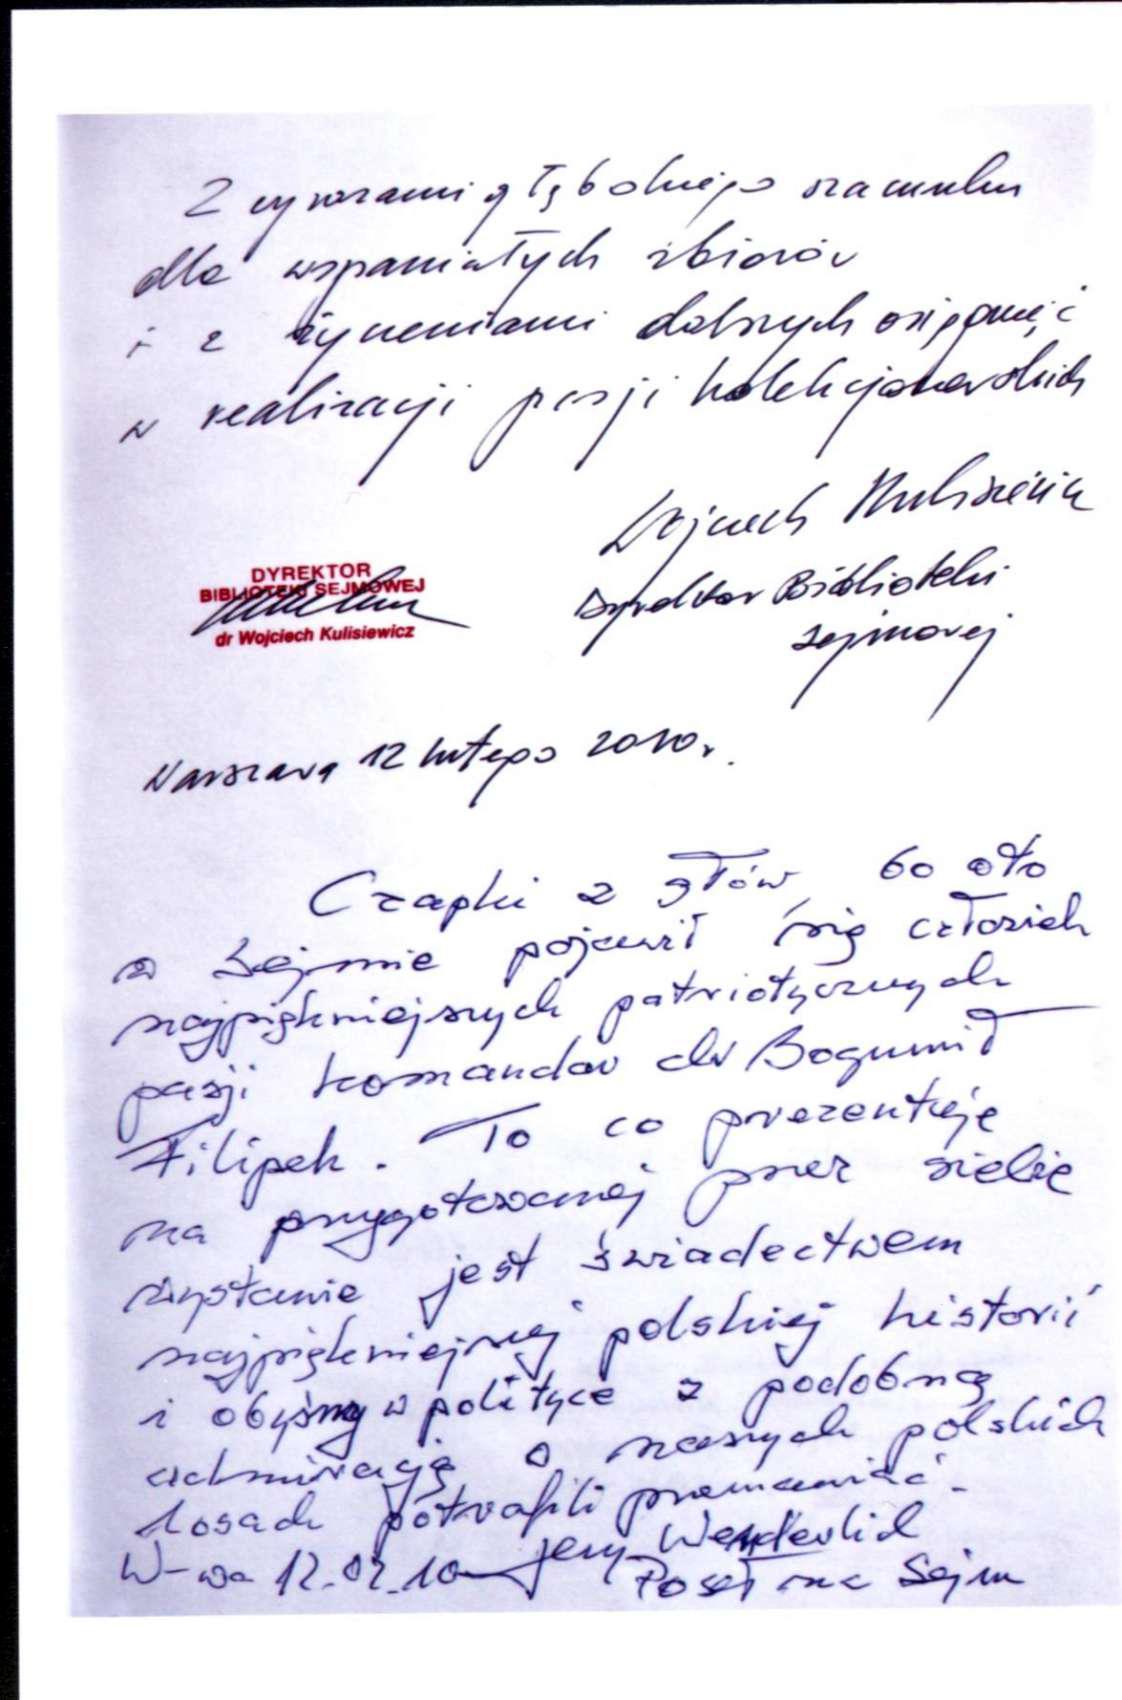 Z wyrazami głębokiego szacunku
dla wspaniałych zbiorów
i z życzeniami dalszych osiągnięć
w realizacji pasji kolekcjonerskich
Wojciech Kulisiewicz
Dyrektor Biblioteki
Sejmowej
DYREKTOR
BIBLIOTEKI SEJMOWEJ
dr Wojciech Kulisiewicz
Warszawa 12 lutego 2010r.
Czapki z głów, bo oto
w Sejmie pojawił się człowiek
najpiękniejszych patriotycznych
pasji komandor dr Bogumił
Filipek. To co prezentuje
na przygotowanej przez siebie
wystawie jest świadectwem
najpiękniejszej polskiej historii
i obyśmy w polityce z podobną
admiracją o naszych polskich
losach potrafili przemawiać.
Jerzy Wenderlich
W-wa 12.02.10 Poseł na Sejm